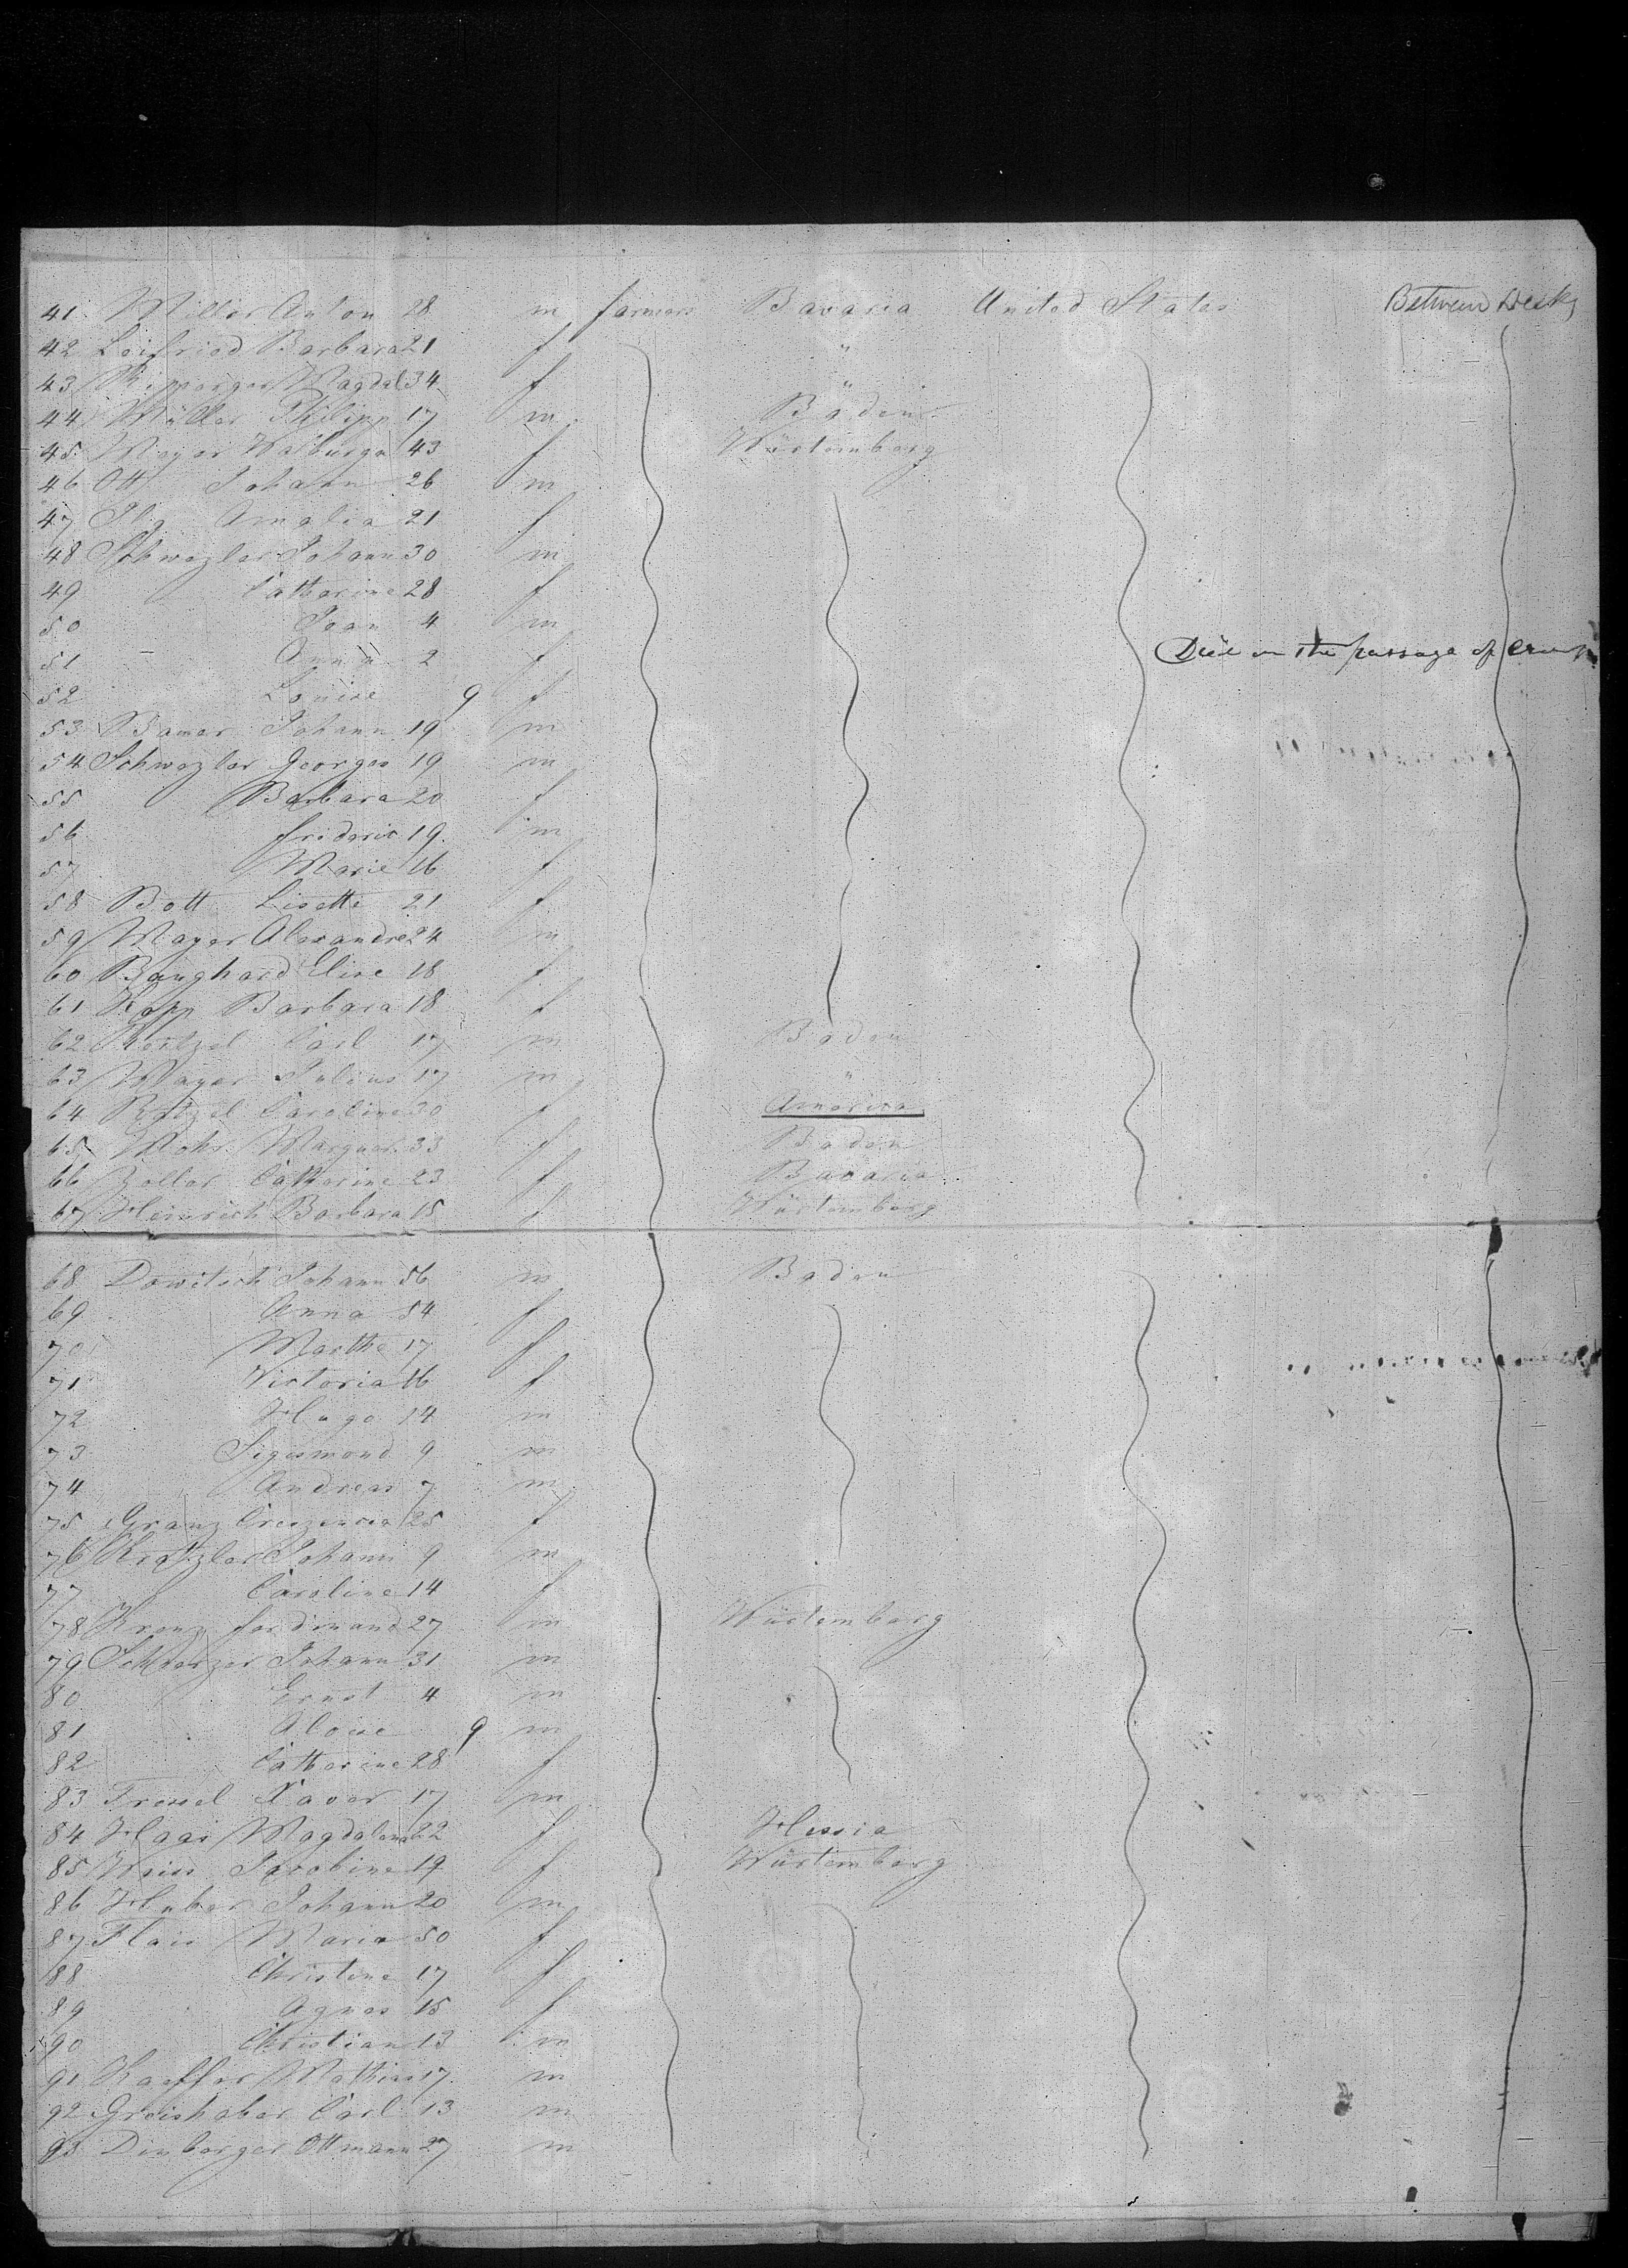 41 Miller Anton 28 m farmers Bavaria United States Between Decks
42 Leifried Barbara 21 f "
43 Magdal 34 f "
44 Müller Philipp 17 m Baden
45 Mayer Walburga 43 f Würtemberg
46 Ott Johann 26 m
47 Ilg Amalia 21 f
48 Schwezler Johann 30 m
49 Catherine 28 f
50 Jean 4 m
51 Anna 2 f Died on the passage of croup
52 Louise 9 f
53 Bamer Johann 19 m
54 Schwezler Georges 19 m
55 Barbara 20 f
56 frideric 19 m
57 Marie 16 f
58 Bott Lisette 21 f
59 Mayer Alexandre 24 m
60 Banghard Elise 18 f
61 Kopp Barbara 18 f
62 Carl 17 m Baden
63 Mayer Julius 17 m "
64 Retzel Caroline 30 f America
65 Mohr Marguer. 33 f Baden
66 Zeller Catherine 23 f Bavaria
67 Heinrich Barbara 15 f Würtemberg
68 Dowitsch Johann 56 m Baden
69 Anna 54 f
70 Marthe 17 f
71 Victoria 16 f
72 Hugo 14 m
73 Sigismond 9 m
74 Andreas 7 m
75 Granz Creszencia 25 f
76 Kratzler Johann 9 m
77 Caroline 14 f
78 Krenz ferdinand 27 m Würtemberg
79 Johann 31 m
80 Ernst 4 m
81 Aloise 9 m
82 Catherine 28 f
83 Tressel Xaver 17 m
84 Haas Magdalena 22 f Hessia
85 Weiss Jacobine 19 f Würtemberg
86 Huber Johann 20 m
87 Flais Maria 50 f
88 Christine 17 f
89 Agnes 15 f
90 Christian 13 m
91 Kaeffer Mathias 17 m
92 Greishaber Carl 13 m
93 Dinberger Ottmann 27 m